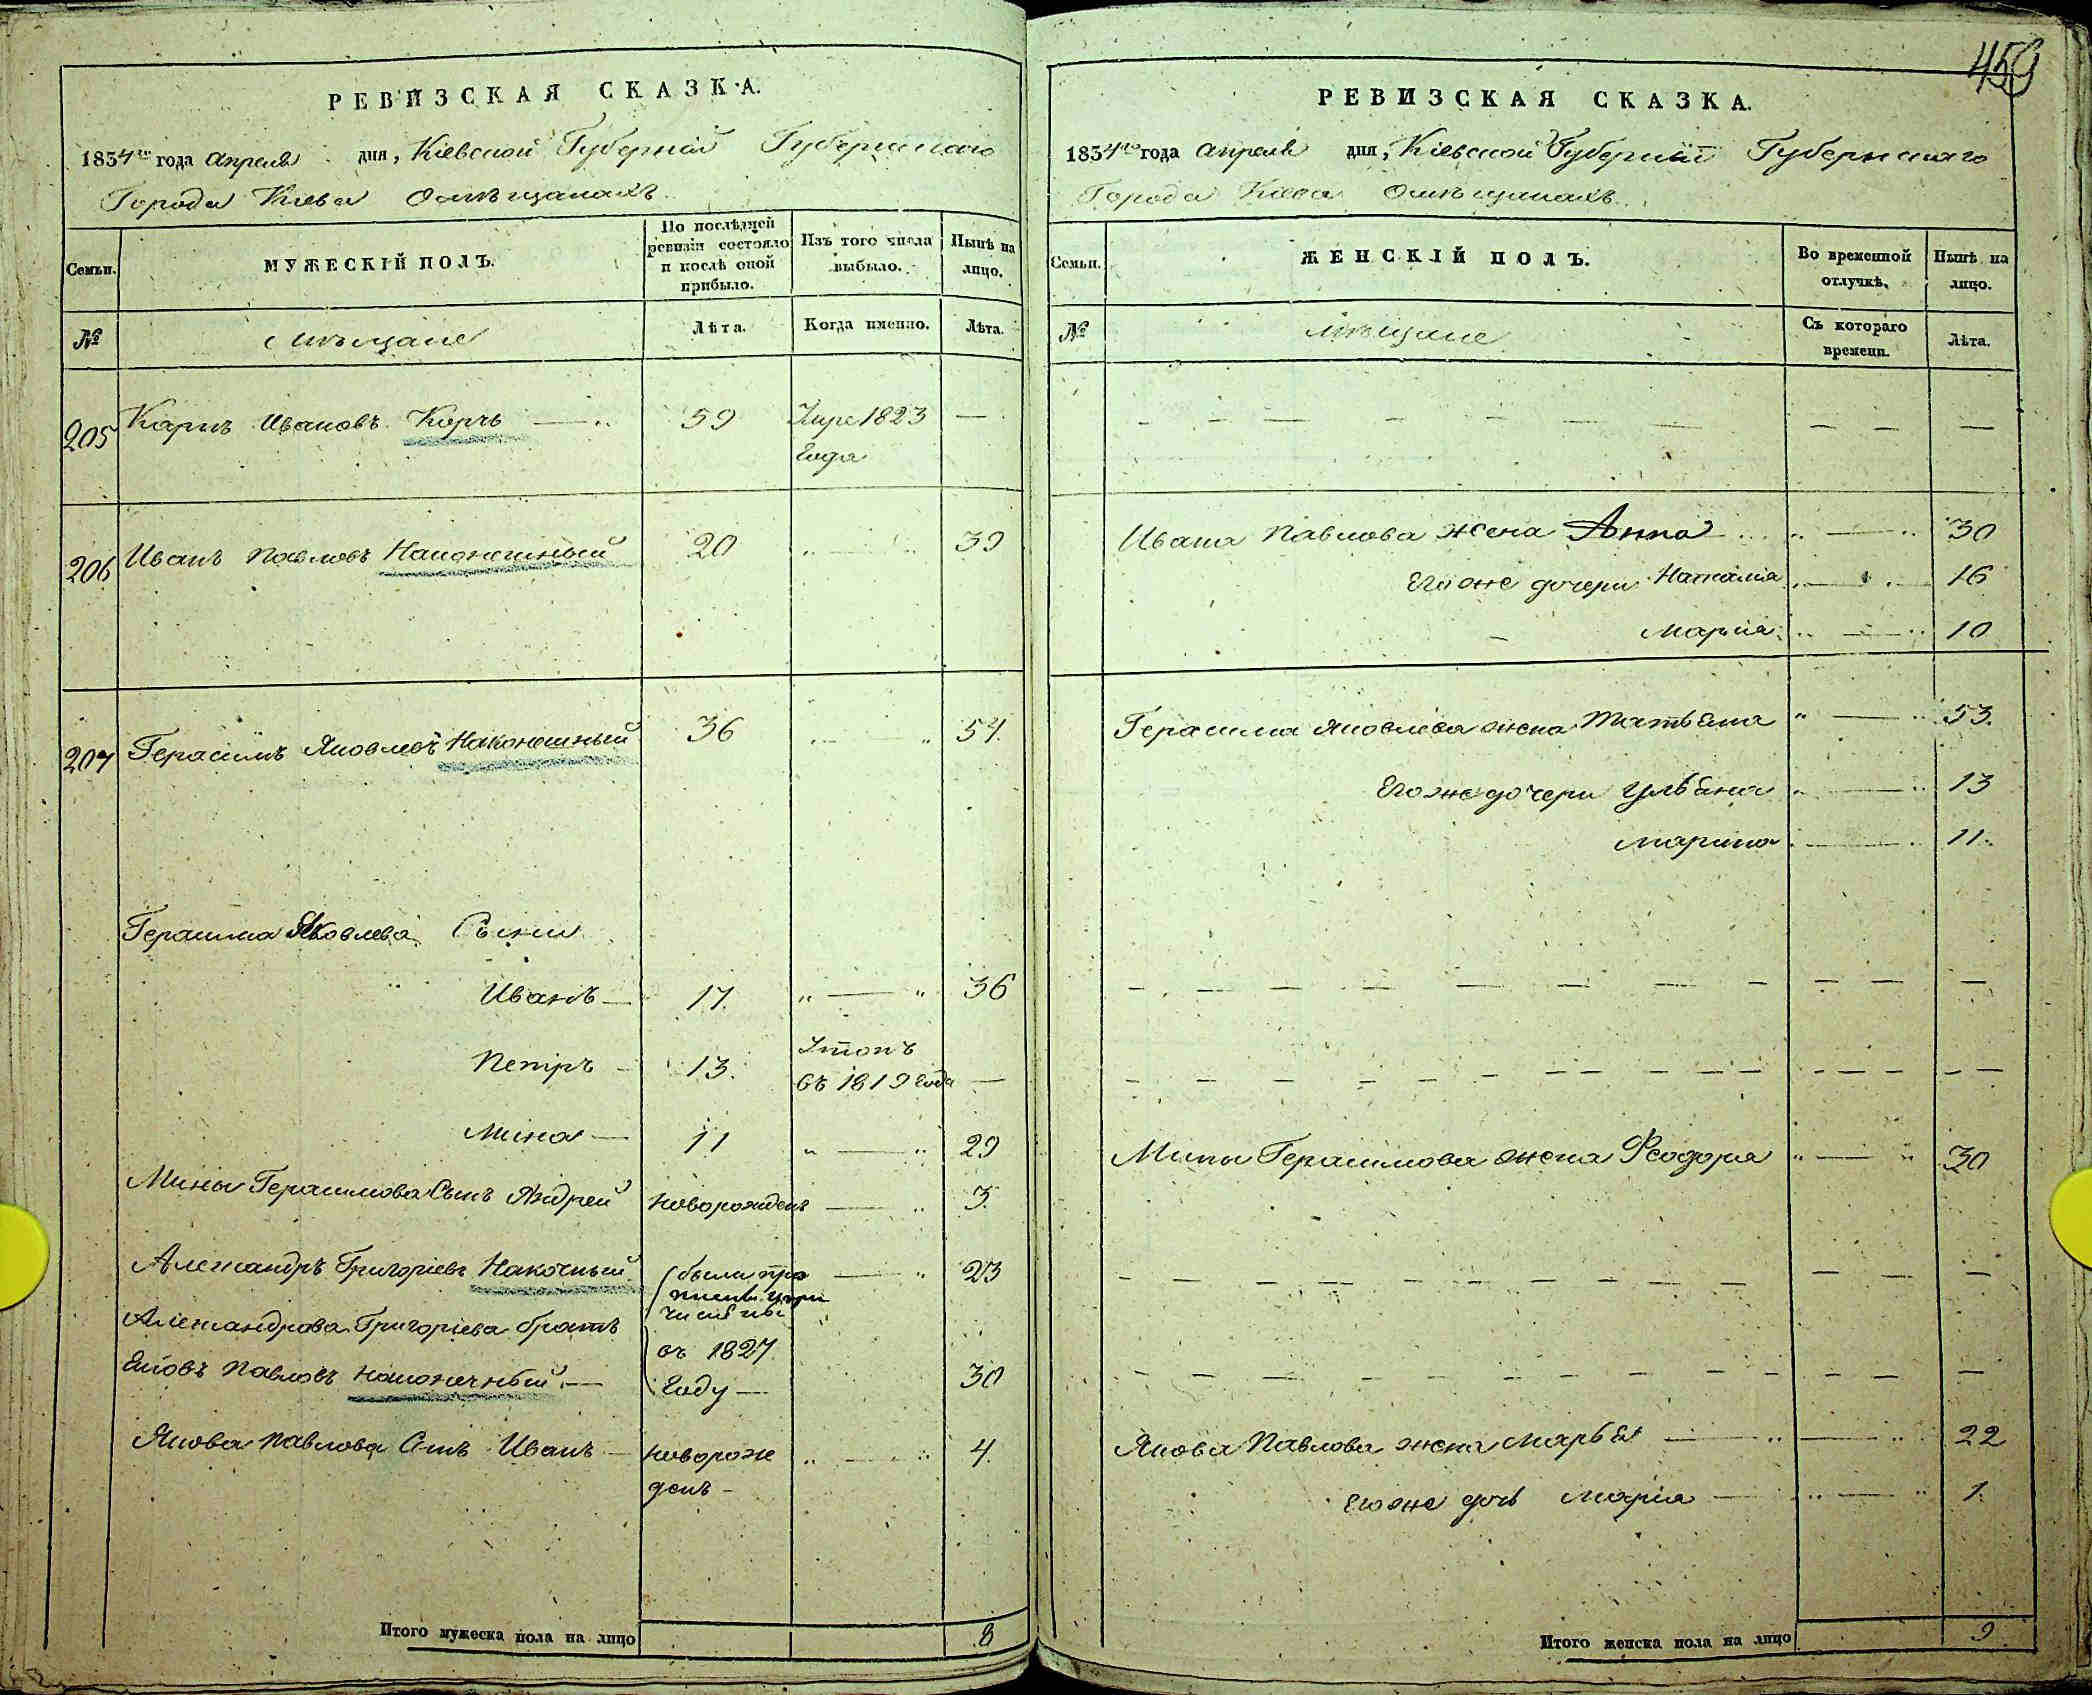 459
РЕВИЗСКАЯ СКАЗКА.
1834го года апреля дня, Кіевской Губерніи Губернскаго
Города Кіева о мѣщанахъ
Семьи.
МУЖЕСКІЙ ПОЛЪ.
По послѣдней ревизіи состояло и послѣ оной прибыло.
Изъ того числа выбыло.
Нынѣ на лицо.
№
мѣщане
Лѣта.
Когда именно.
Лѣта.
205 Карпъ Ивановъ Корчь 59 Умре 1823 —
года
206 Иванъ Павловъ Наконешный 20 „ — „ 39
207 Герасимъ Яковлевъ Наконешный 36 „ — „ 54.
Герасима Яковлева Сыни
Иванъ — 17. „ — „ 36
Петръ — 13. Утопъ
въ 1819 года —
Мина — 11 „ — „ 29
Мины Герасимова Сынъ Андрей новорожденъ — „ 3.
Александръ Григоріевъ Накочный были про — „ 23
Александрова Григоріева братъ
въ 1827.
Яковъ Павловъ Наконечный. — году — 30
Якова Павлова Снъ Иванъ — новорож „ — „ 4.
денъ —
Итого мужеска пола на лицо 8
РЕВИЗСКАЯ СКАЗКА.
1834го года апреля дня, Кіевской Губерніи Губернскаго
Города Кіева о мѣщанахъ
Семьи.
ЖЕНСКІЙ ПОЛЪ.
Во временной отлучкѣ.
Нынѣ на лицо.
№
мѣщане
Съ котораго времени.
Лѣта.
Ивана Павлова жена Анна „ — „ 30
Его же дочери Наталія „ — „ 16
Марія „ — „ 10
Герасима Яковлева жена Татьяна „ — „ 53.
Его же дочери Ульяна „ — „ 13
Марина „ — „ 11.
Мины Герасимова жена Феодора „ — „ 30
Якова Павлова жена Марья — „ — „ 22
Его же дочь Марія — „ — „ 1.
Итого женска пола на лицо 9